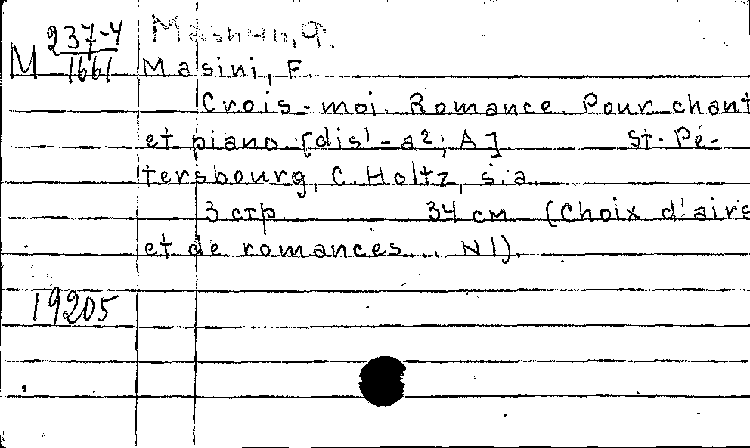 M 237-4/1661
Мазини, Ф.
Masini, F.
Crois-moi. Romance. Pour chant
et piano [dis¹-a²; A] St.-Pé-
tersbourg, C. Holtz, s.a.
3 стр 34 см (Choix d'airs
et de romances... N1).
19205